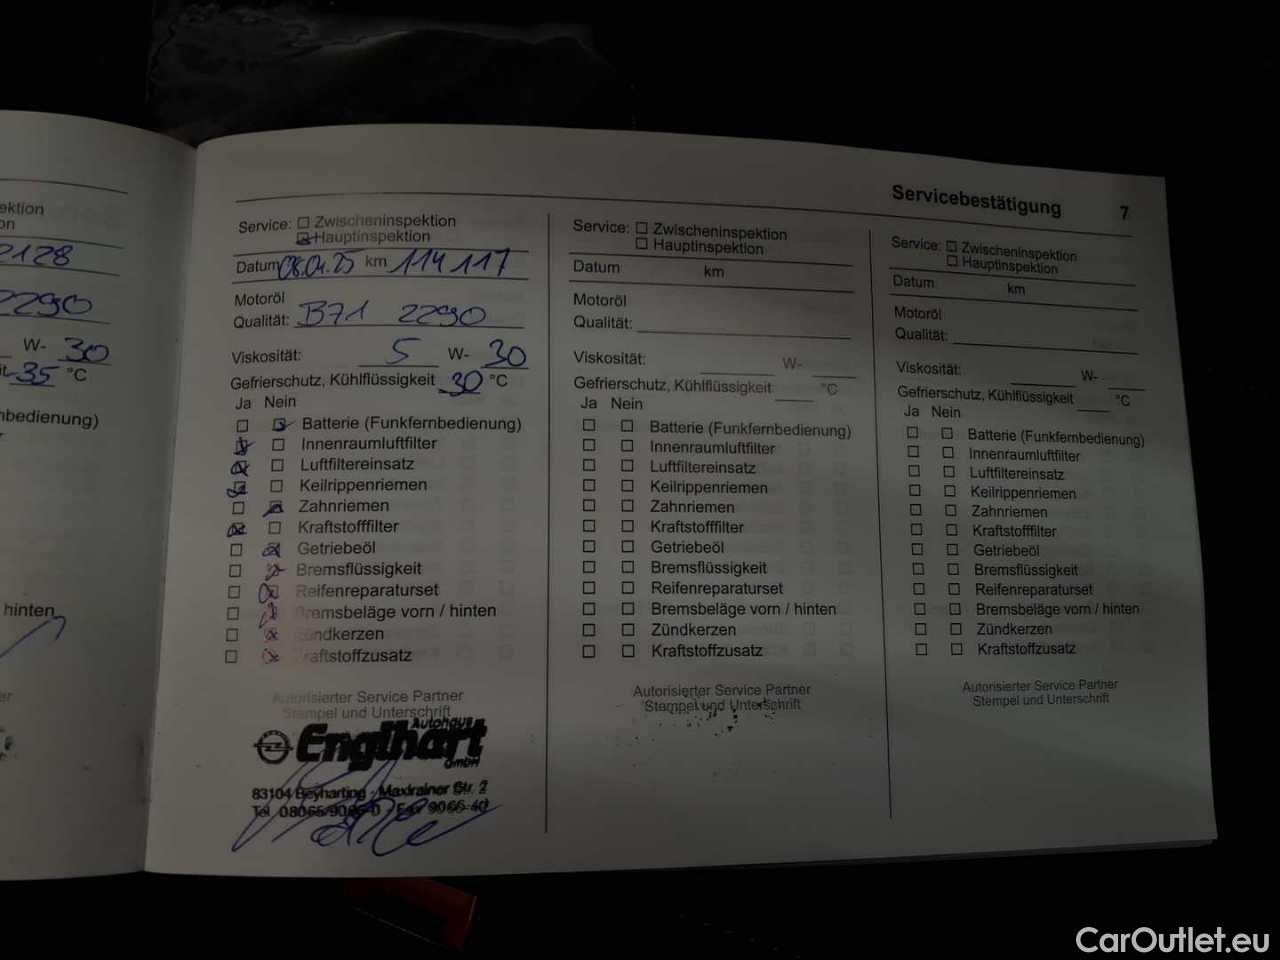 ektion
on
2128
2290
W- 30
35 °C
nbedienung)
hinten
Servicebestätigung 7
Service: Zwischeninspektion
Hauptinspektion
Datum 08.04.25 km 114117
Motoröl
Qualität: B71 2290
Viskosität: 5 W- 30
Gefrierschutz, Kühlflüssigkeit 30 °C
Ja Nein
Batterie (Funkfernbedienung)
Innenraumluftfilter
Luftfiltereinsatz
Keilrippenriemen
Zahnriemen
Kraftstofffilter
Getriebeöl
Bremsflüssigkeit
Reifenreparaturset
Bremsbeläge vorn / hinten
Zündkerzen
Kraftstoffzusatz
Autorisierter Service Partner
Stempel und Unterschrift
Autohaus
Englhart
GmbH
83104 Beyharting - Maxlrainer Str. 2
Tel. 08065/9066-0 - Fax 9066-40
Service: Zwischeninspektion
Hauptinspektion
Datum km
Motoröl
Qualität:
Viskosität: W-
Gefrierschutz, Kühlflüssigkeit °C
Ja Nein
Batterie (Funkfernbedienung)
Innenraumluftfilter
Luftfiltereinsatz
Keilrippenriemen
Zahnriemen
Kraftstofffilter
Getriebeöl
Bremsflüssigkeit
Reifenreparaturset
Bremsbeläge vorn / hinten
Zündkerzen
Kraftstoffzusatz
Autorisierter Service Partner
Stempel und Unterschrift
Service: Zwischeninspektion
Hauptinspektion
Datum km
Motoröl
Qualität:
Viskosität: W-
Gefrierschutz, Kühlflüssigkeit °C
Ja Nein
Batterie (Funkfernbedienung)
Innenraumluftfilter
Luftfiltereinsatz
Keilrippenriemen
Zahnriemen
Kraftstofffilter
Getriebeöl
Bremsflüssigkeit
Reifenreparaturset
Bremsbeläge vorn / hinten
Zündkerzen
Kraftstoffzusatz
Autorisierter Service Partner
Stempel und Unterschrift
CarOutlet.eu